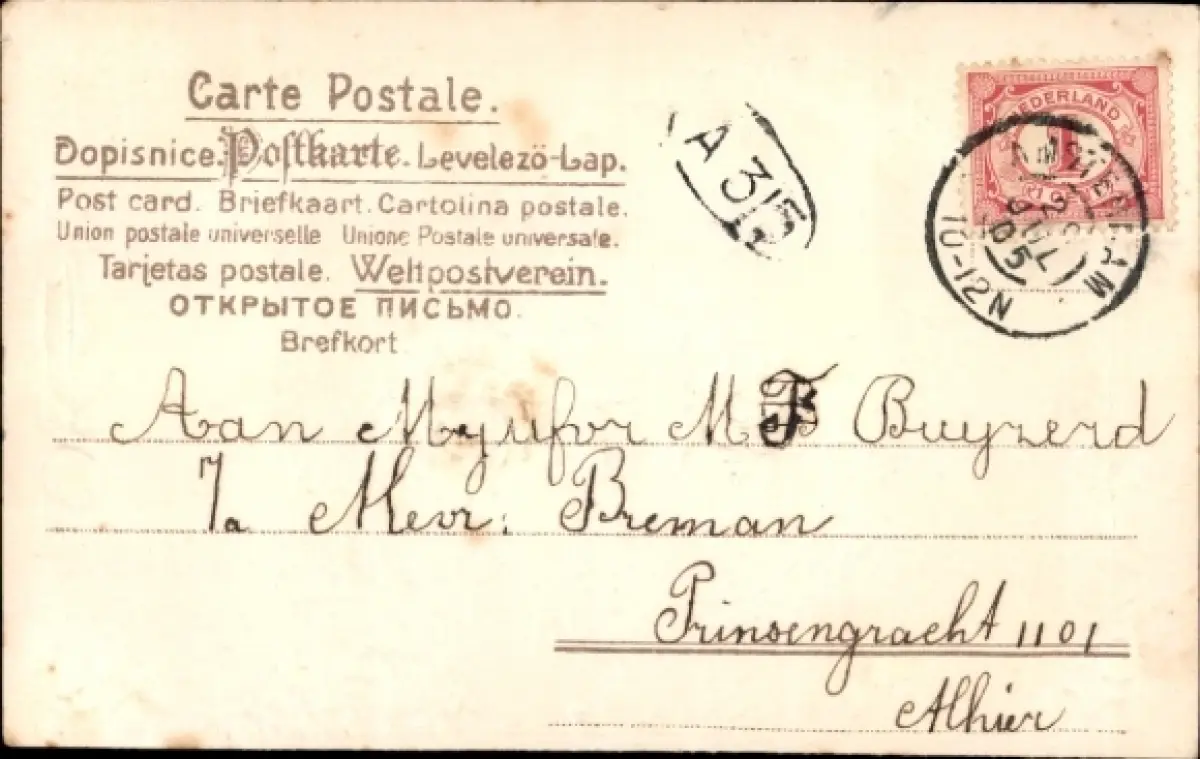 Carte Postale.
Dopisnice. Postkarte. Levelező-Lap.
Post card. Briefkaart. Cartolina postale.
Union postale universelle Unione Postale universale.
Tarjetas postale. Weltpostverein.
ОТКРЫТОЕ ПИСЬМО.
Brefkort
A 315
NEDERLAND
1
AMSTERDAM
10-12N
05
Aan Mejufvr M B Buyzerd
7a Mevr: Breman
Prinsengracht 1101
Alhier